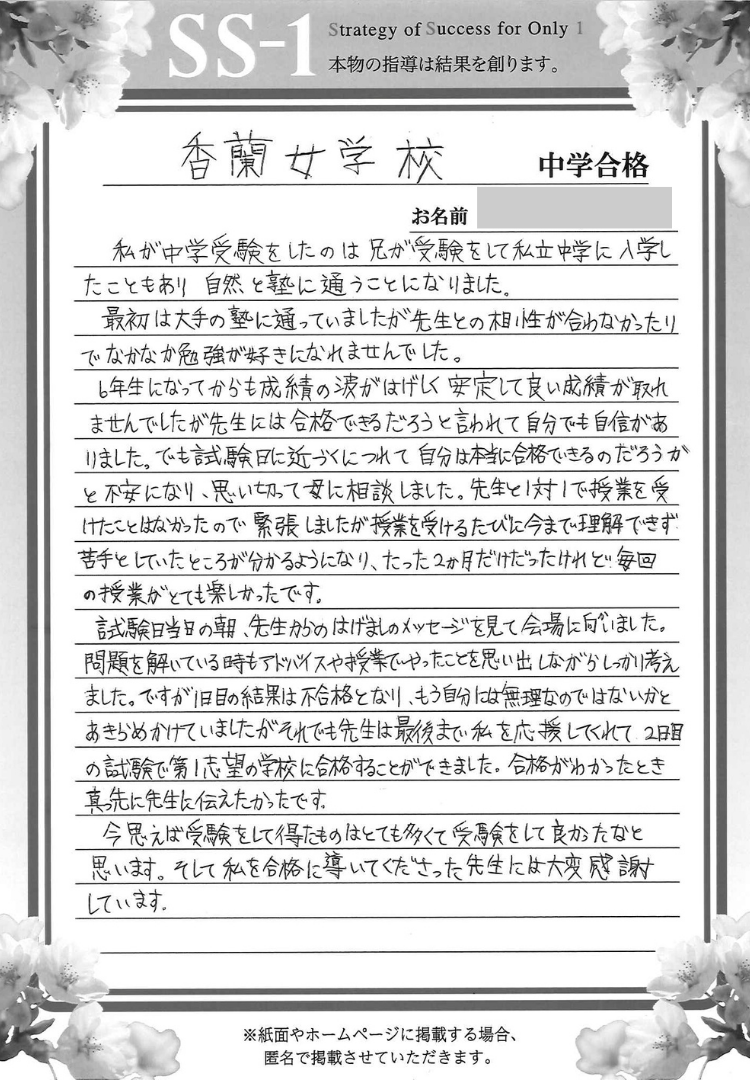 SS-1 Strategy of Success for Only 1
本物の指導は結果を創ります。
香蘭女学校 中学合格
お名前
私が中学受験をしたのは兄が受験をして私立中学に入学し
たこともあり自然と塾に通うことになりました。
最初は大手の塾に通っていましたが先生との相性が合わなかったり
でなかなか勉強が好きになれませんでした。
6年生になってからも成績の波がはげしく安定して良い成績が取れ
ませんでしたが先生には合格できるだろうと言われて自分でも自信があ
りました。でも試験日に近づくにつれて自分は本当に合格できるのだろうか
と不安になり、思い切って母に相談しました。先生と1対1で授業を受
けたことはなかったので緊張しましたが授業を受けるたびに今まで理解できず
苦手としていたところが分かるようになり、たった2か月だけだったけれど毎回
の授業がとても楽しかったです。
試験日当日の朝、先生からのはげましのメッセージを見て会場に向いました。
問題を解いている時もアドバイスや授業でやったことを思い出しながらしっかり考え
ました。ですが1日目の結果は不合格となり、もう自分には無理なのではないかと
あきらめかけていましたがそれでも先生は最後まで私を応援してくれて2日目
の試験で第1志望の学校に合格することができました。合格がわかったとき
真っ先に先生に伝えたかったです。
今思えば受験をして得たものはとても多くて受験をして良かったなと
思います。そして私を合格に導いてくださった先生には大変感謝
しています。
※紙面やホームページに掲載する場合、
匿名で掲載させていただきます。